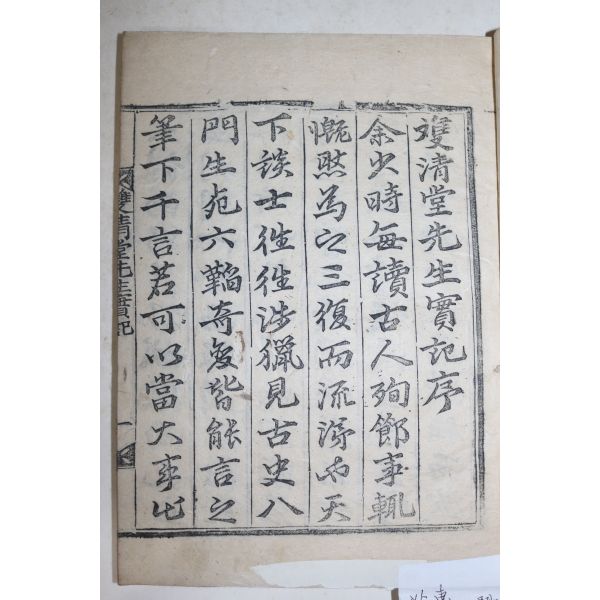 雙清堂先生實記序
余少時每讀古人殉節事輒
慨慜為之三復而流涕也天
下談士徃徃涉獵見古史八
門生死六鞱奇變皆能言之
筆下千言若可以當大事比
雙清堂先生實記 一